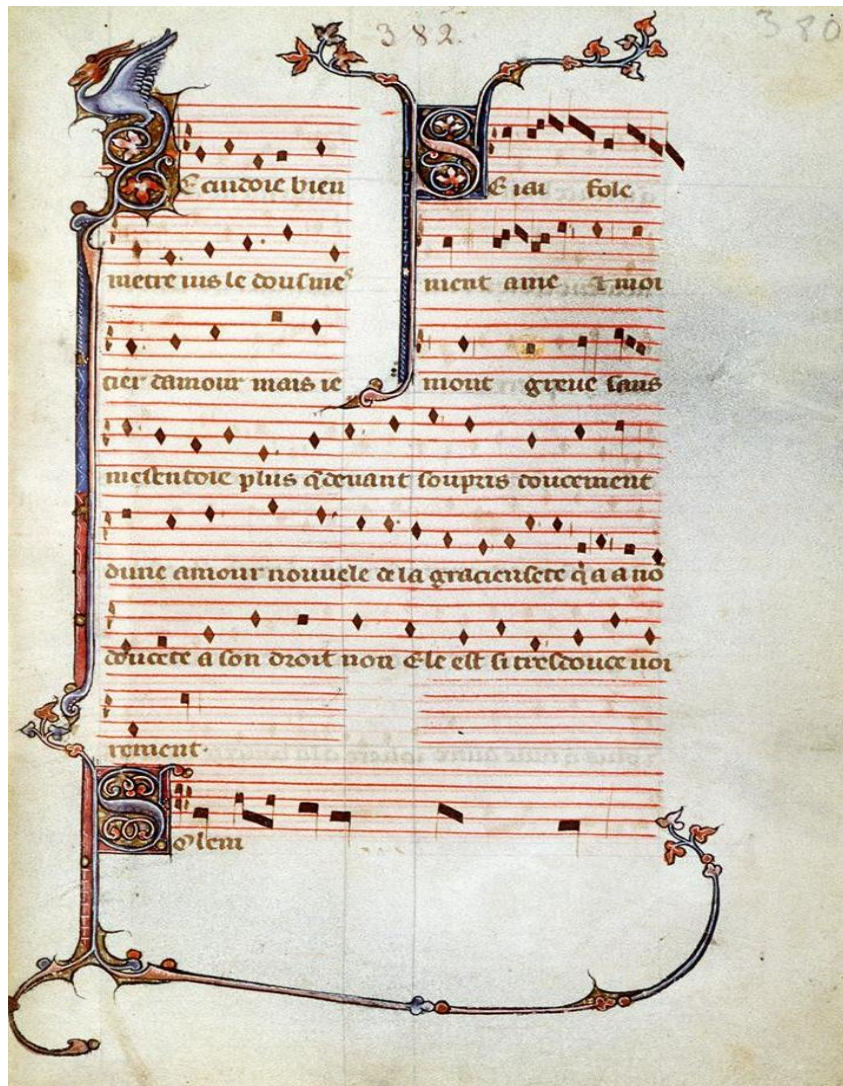 382.
380
Je cuidoie bien
metre ius le dous mes
tier damour mais ie
Se iai fole
ment ame ⁊ moi
mont greve sans
mesentoie plus q̃ devant soupris doucement
dune amour nouvele de la graciensete q̃ a a nõ
doucete a son droit non Ele est si tresdouce voi
rement.
Solem